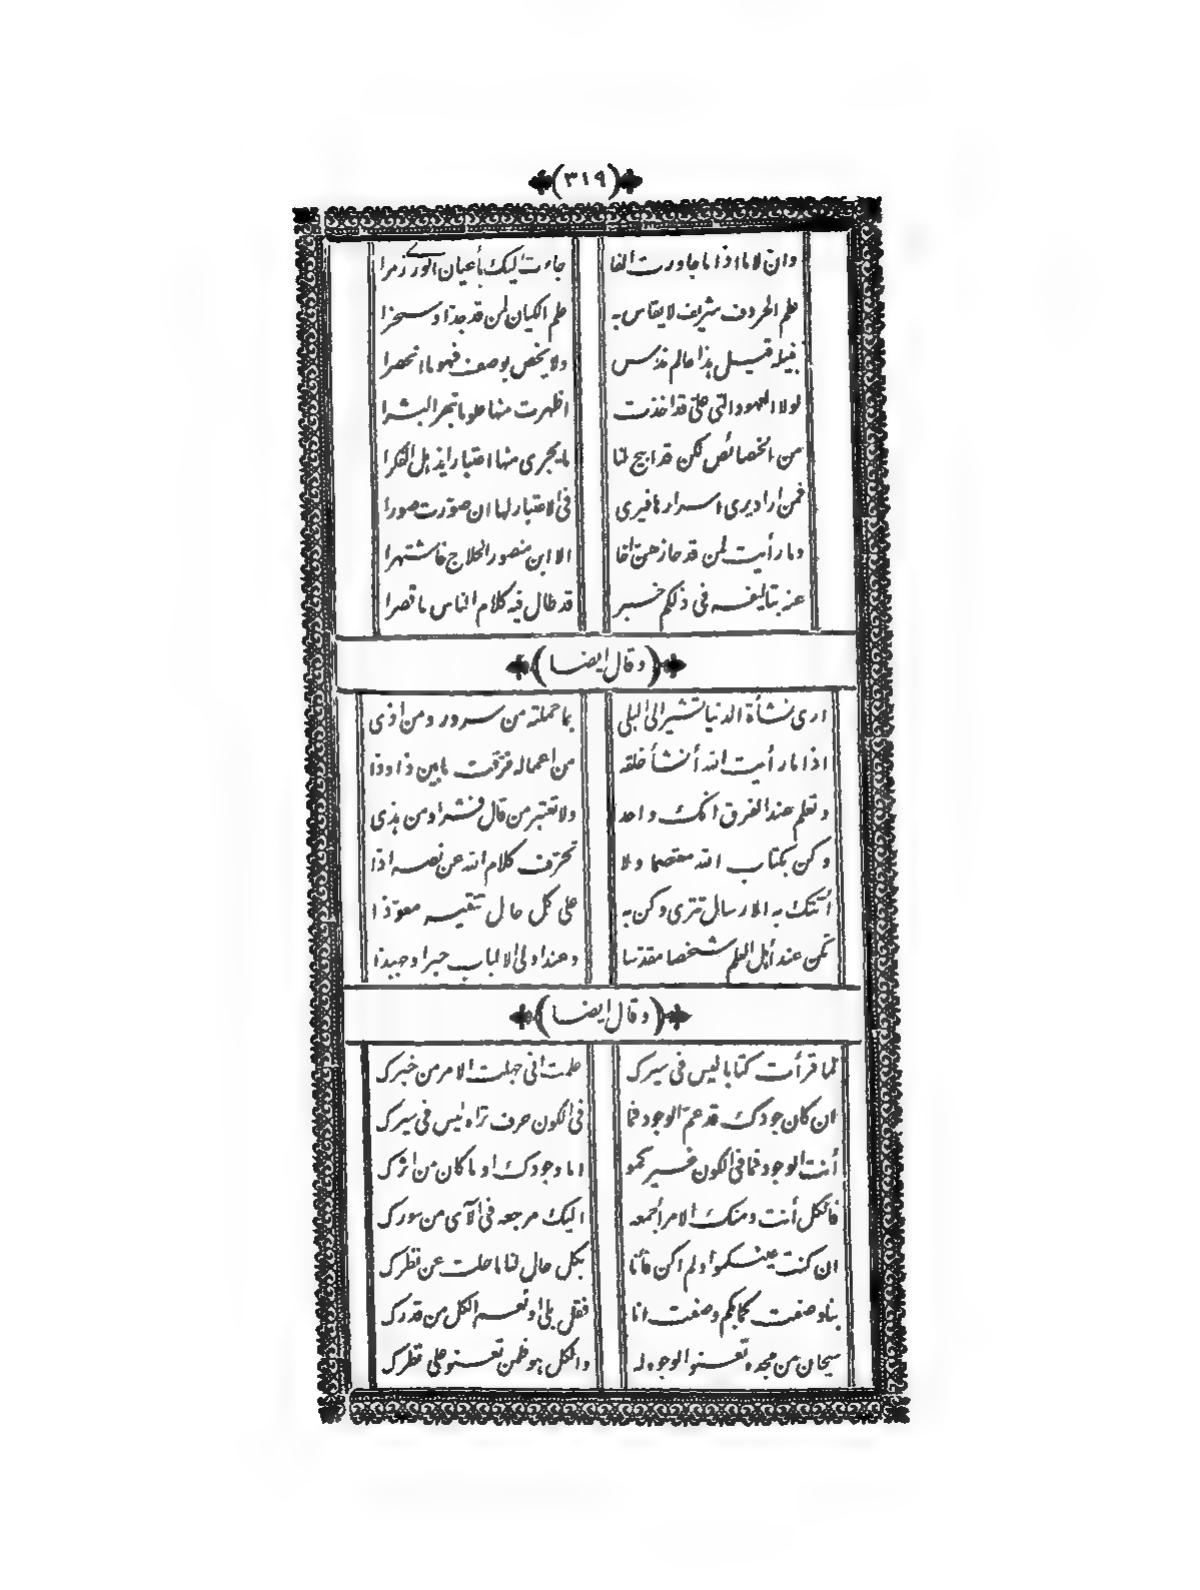 (٣١٩)
وان لاما اذا ما جاورت ألفا جاءت اليك بأعيان الورى زمرا
علم الحروف شريف لا يقاس به علم الكيان لمن قد جدّ أو سخرا
هذا عالم ندس ولا يخص بوصف فهو ما انحصرا
لولا العهود التي عليّ قد أخذت أظهرت منها علوما تبهر البشرا
من الخصائص لكن قد ابيح لنا ما يجري منها اعتبارا يذهل الفكرا
فمن اراد يرى اسرارها فيرى في الاعتبار لها ان صوّرت صورا
وما رأيت لمن قد حازهنّ لقا الا ابن منصور الحلاج فاشتهرا
عنه بتأليفه في ذلكم خبر قد طال فيه كلام الناس ما قصرا
(وقال ايضا)
ارى نشأة الدنيا تشير الى البلى بما حملته من سرور ومن اذى
اذا ما رأيت الله أنشأ خلقه من اعماله فرّقت ما بين ذا وذا
وتعلم عند الفرق انك واحد ولا تعتبر من قال فشرا ومن هذى
وكن بكتاب الله معتصما ولا تحرّف كلام الله عن نصه اذا
أتتك به الارسال تترى وكن به على كل حال تتقيه معوّذا
تكن عند أهل العلم شخصا مقدّسا وعند اولى الالباب حبرا وجهبذا
(وقال ايضا)
لما قرأت كتابا ليس في سيرك علمت اني جهلت الامر من خبرك
ان كان جودك قد عمّ الوجود فما في الكون حرف تراه ليس في سيرك
أنت الوجود فما في الكون غيركمو اما وجودك او ما كان من اثرك
فالكل أنت ومنك الامر أجمعه اليك مرجعه في الآى من سورك
ان كنت عينكموا ولم اكن فأنا بكل حال لنا ما حلت عن نظرك
بنا وصفت كما بكم وصفت انا فقل بلى او نعم الكل من قدرك
سبحان من مجده تعنو الوجوه له والكل هو فلمن تعنو على نظرك